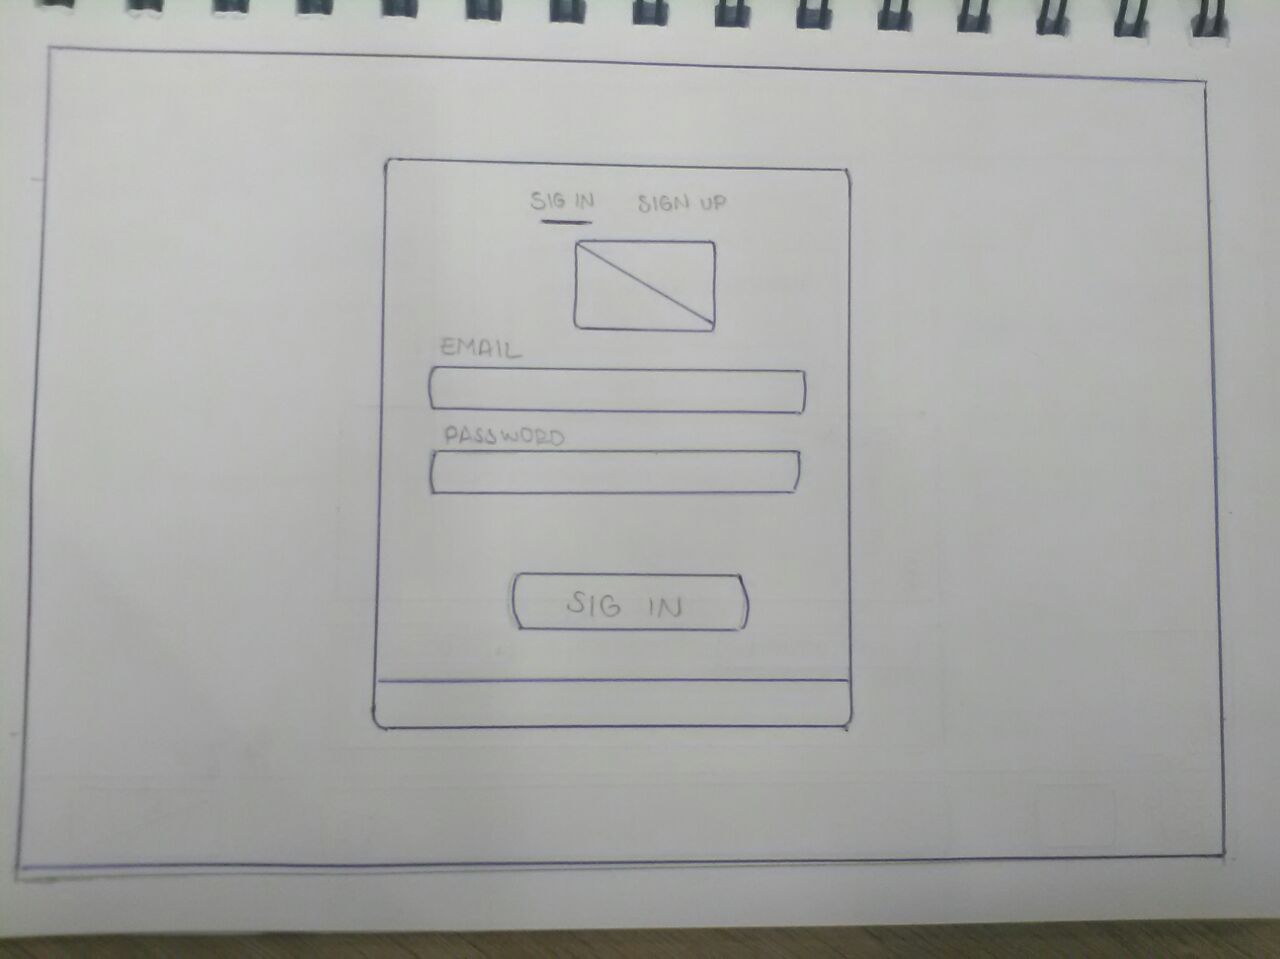 SIG IN SIGN UP
EMAIL
PASSWORD
SIG IN